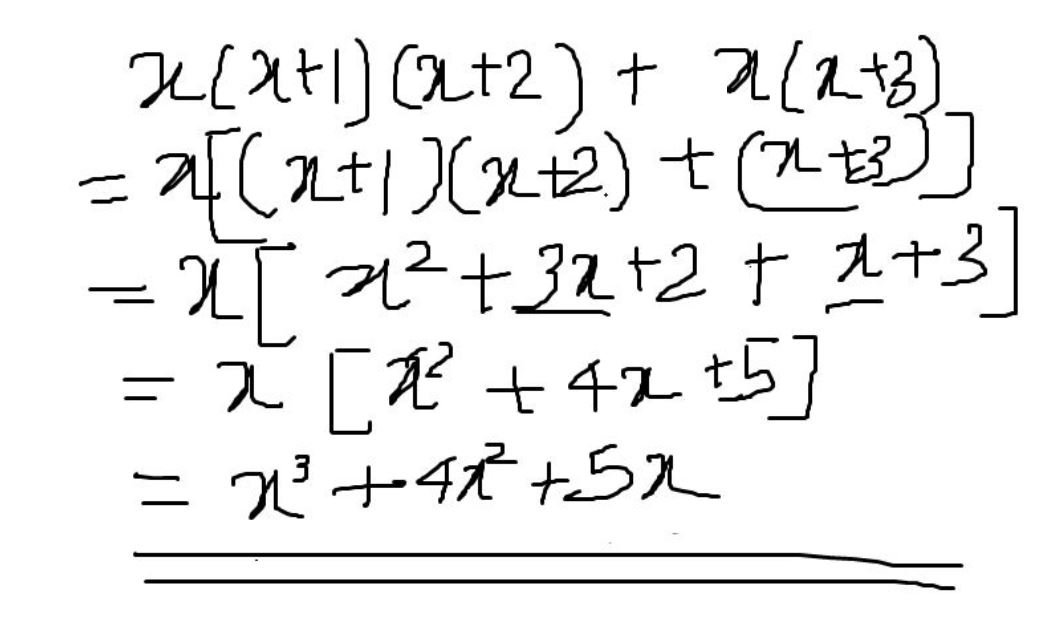 x(x+1)(x+2) + x(x+3)
= x[(x+1)(x+2) + (x+3)]
= x[x² + 3x + 2 + x + 3]
= x[x² + 4x + 5]
= x³ + 4x² + 5x